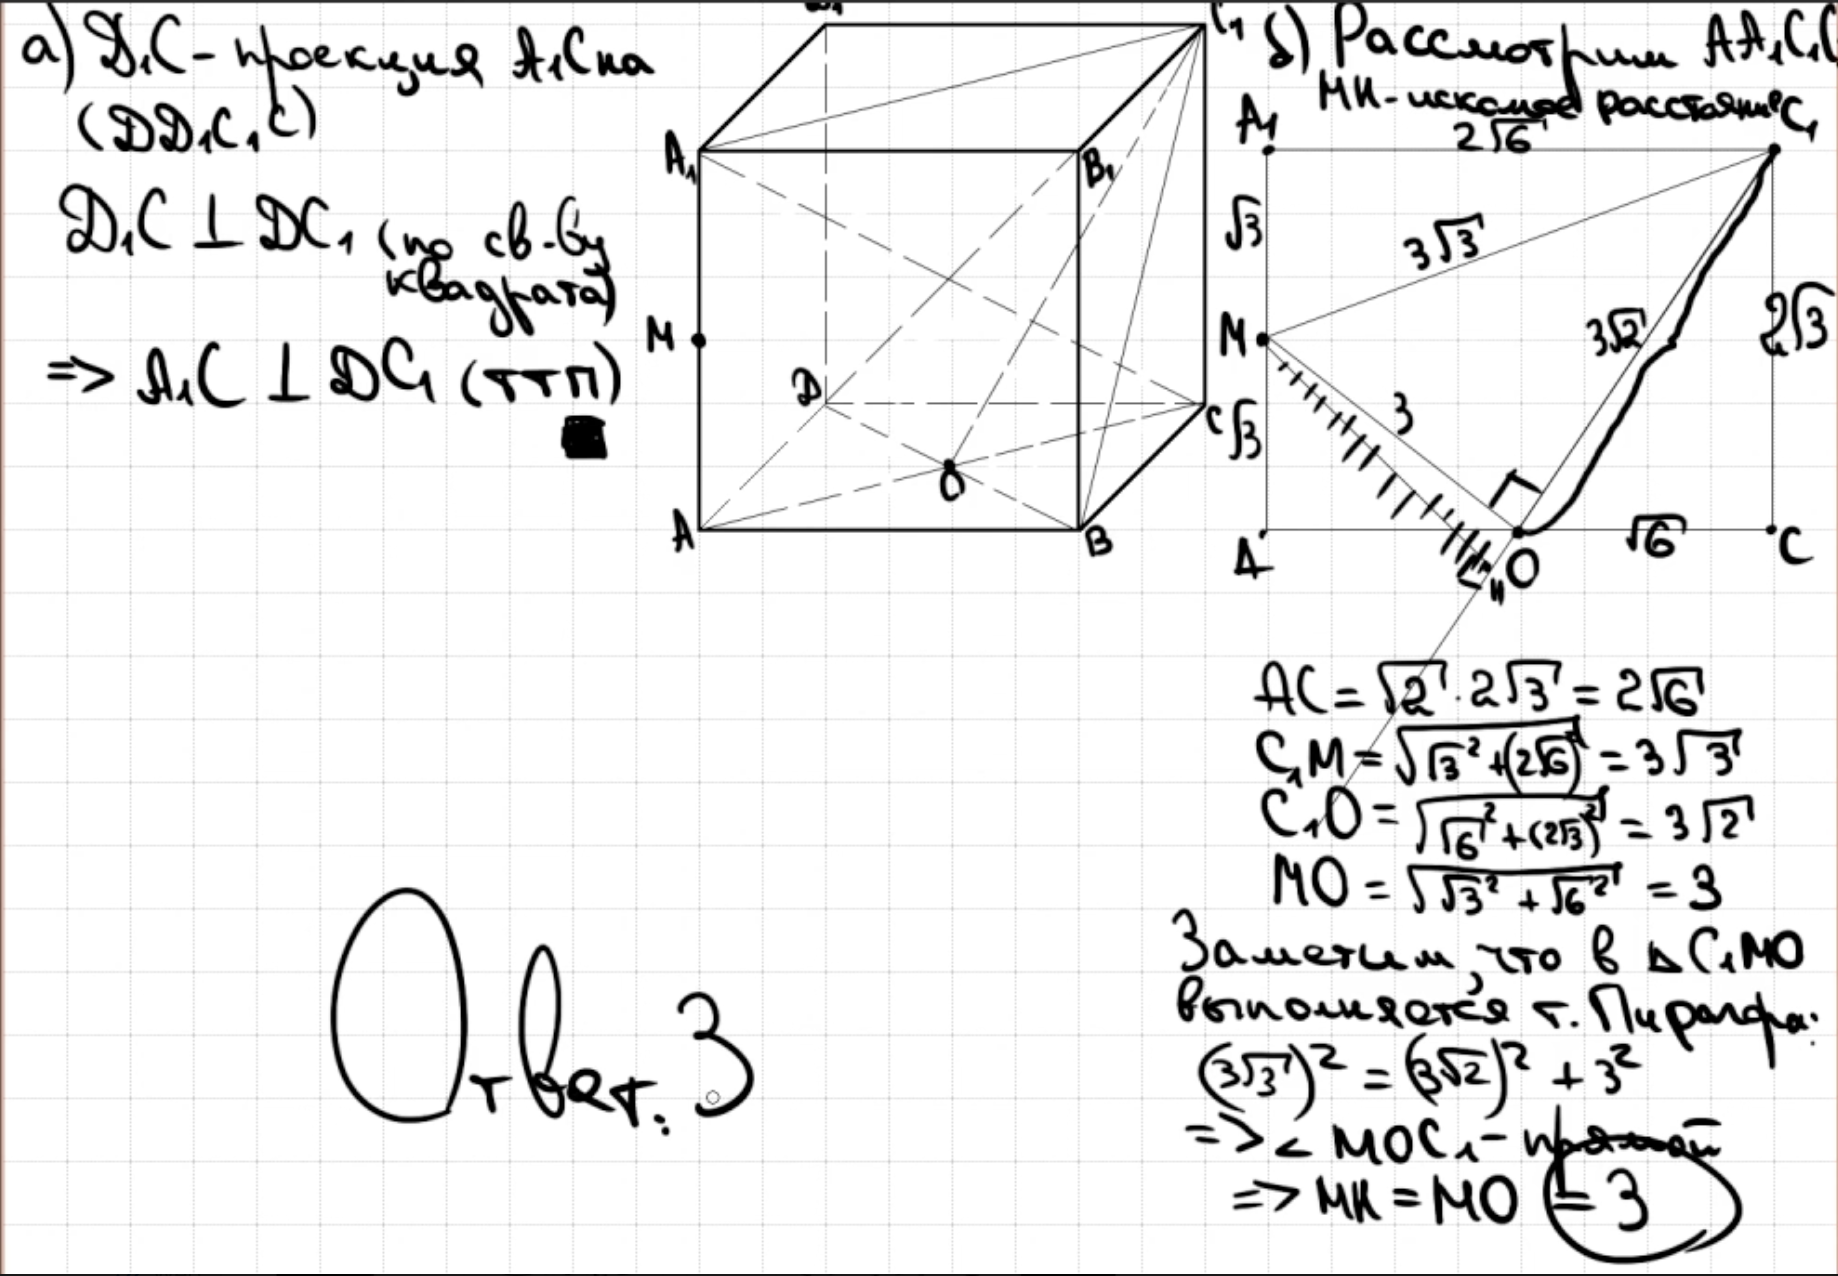 а) D₁C - проекция A₁C на
(DD₁C₁C)
D₁C ⊥ DC₁ (по св-ву
квадрата)
=> A₁C ⊥ DC₁ (ТТП)
C₁
A₁
B₁
M
D
C
O
A
B
б) Рассмотрим AA₁C₁C
МН - искомое расстояние
A₁
2√6
C₁
√3
3√3
M
3√2
2√3
3
√3
A
H
O
√6
C
AC = √2 · 2√3 = 2√6
C₁M = √(√3² + (2√6)²) = 3√3
C₁O = √(√6² + (2√3)²) = 3√2
MO = √(√3² + √6²) = 3
Заметим, что в △C₁MO
выполняется т. Пифагора:
(3√3)² = (3√2)² + 3²
=> ∠MOC₁ - прямой
=> МН = МО = 3
Ответ: 3